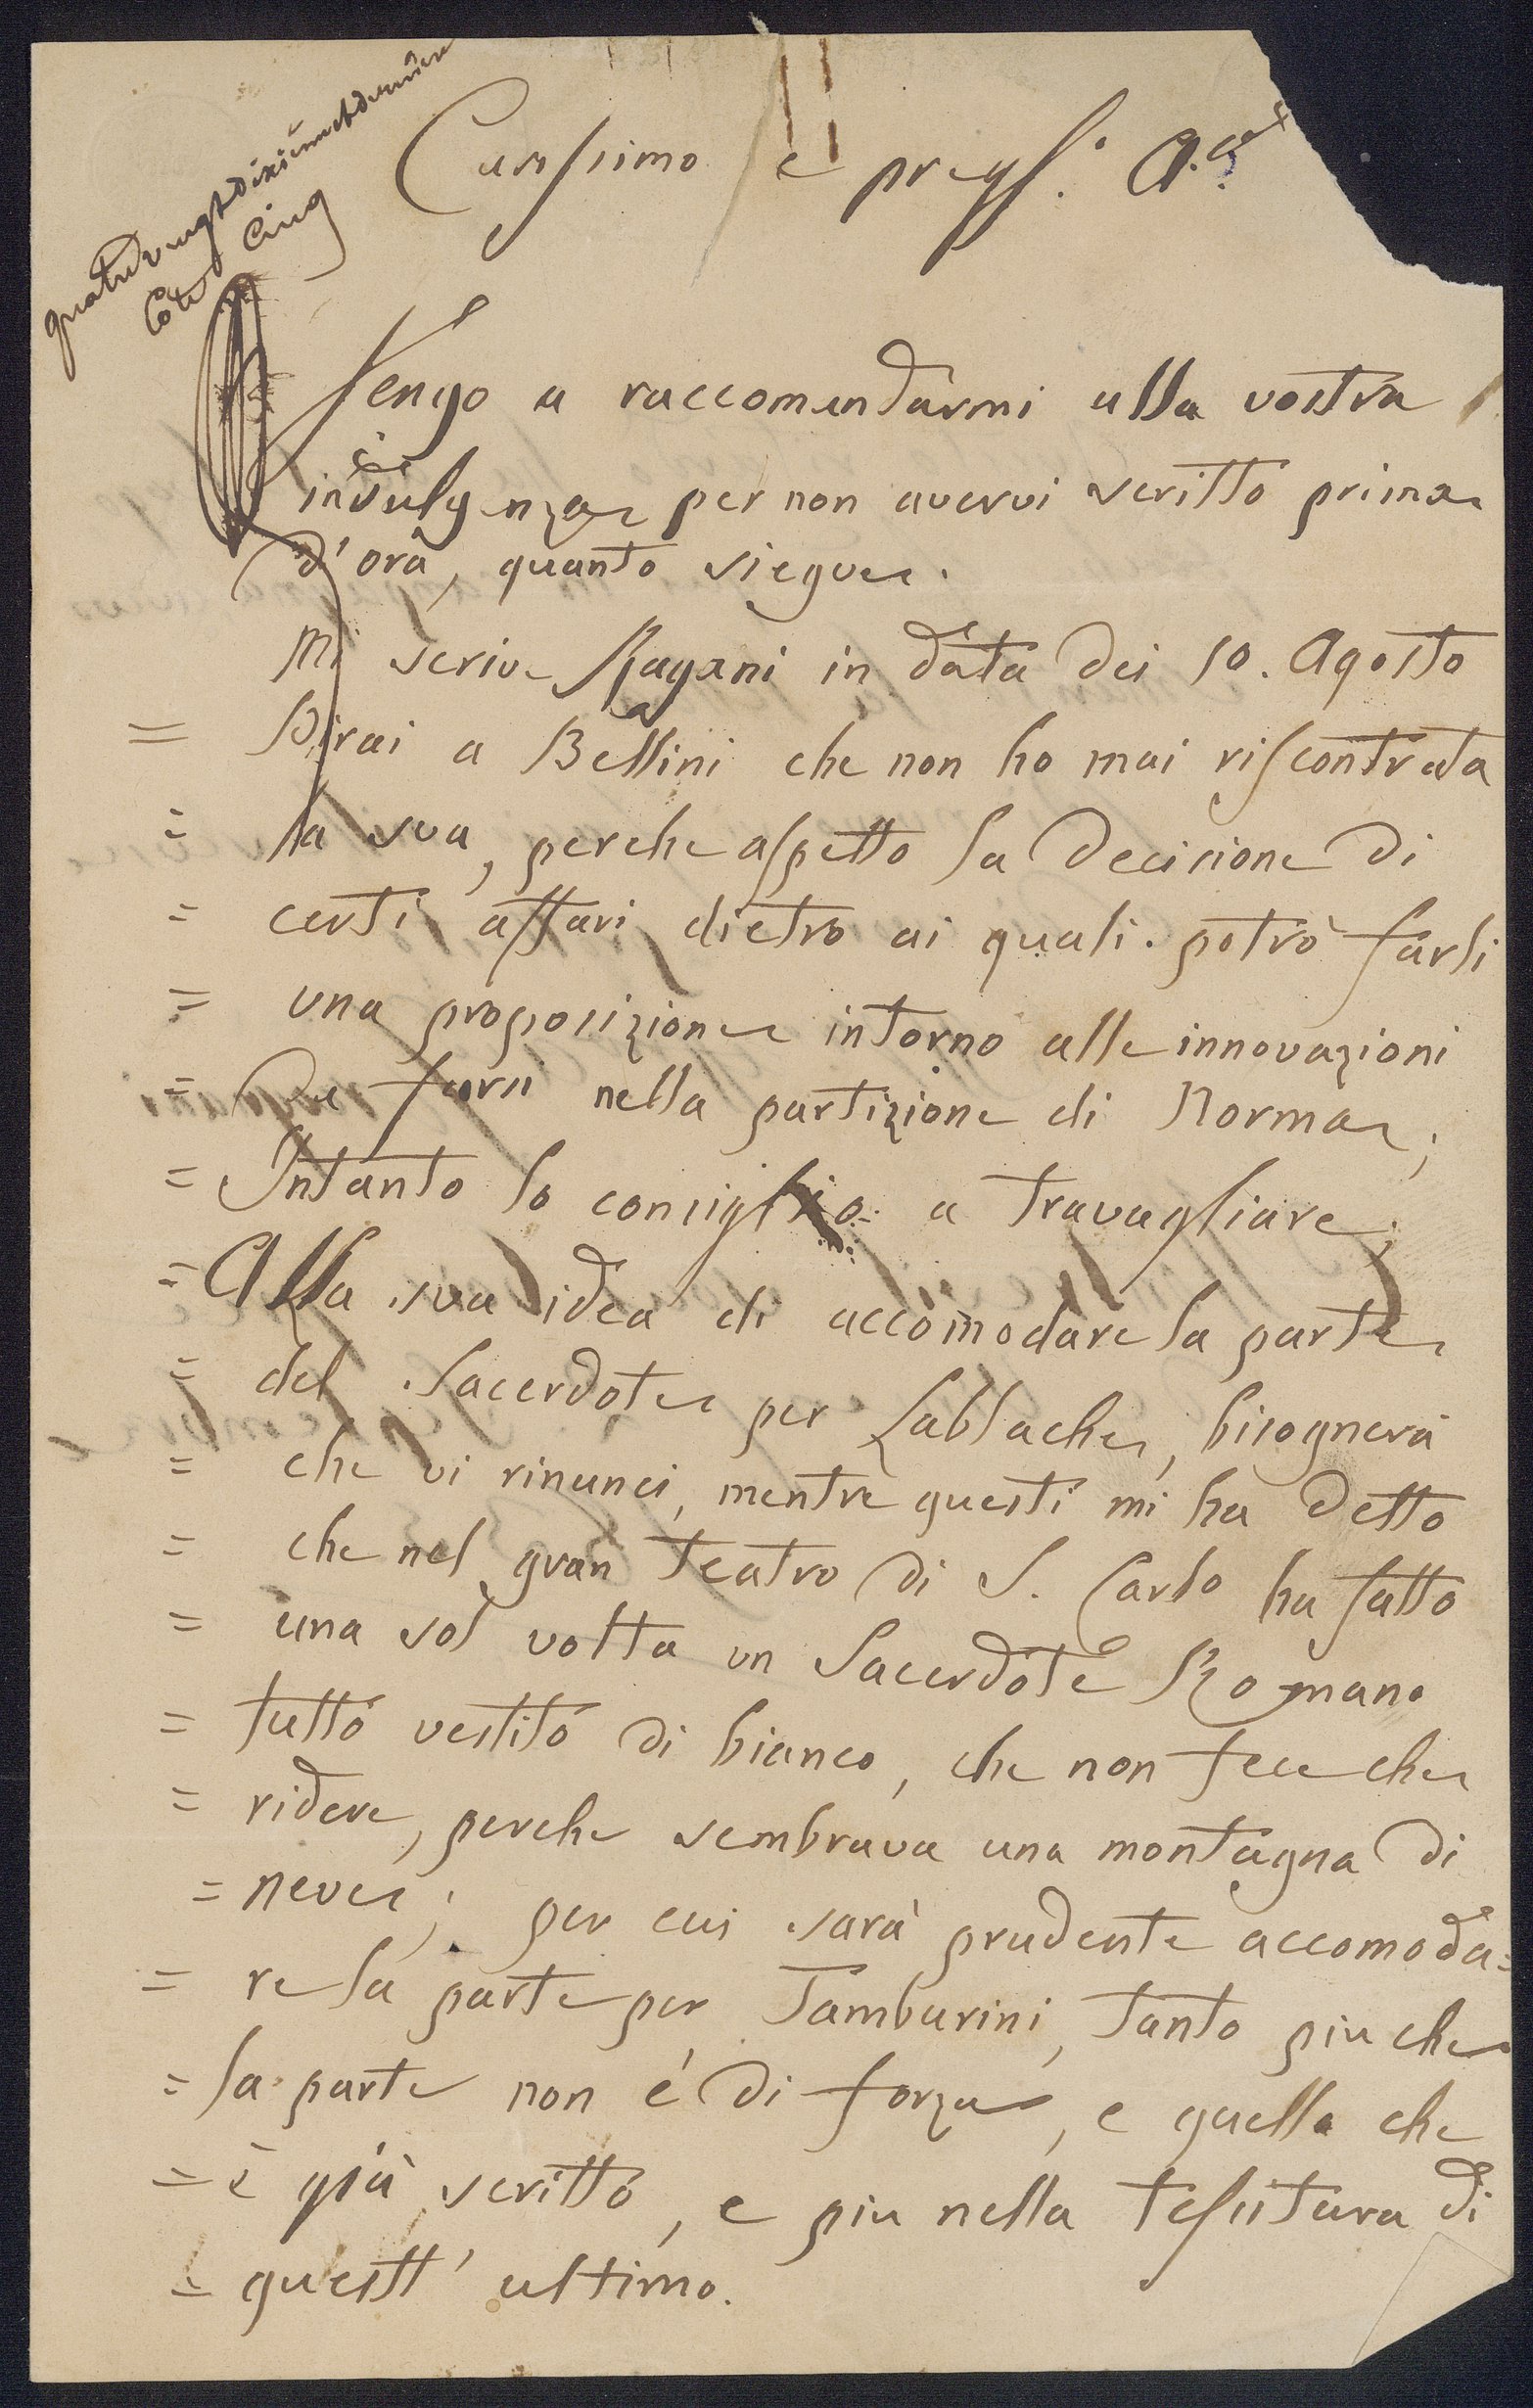 quatrevingtdixieme et derniere
Cote Cinq
Carissimo e pregs. A.co
Vengo a raccomandarmi alla vostra
indulgenza per non avervi scritto prima
d'ora, quanto siegue.
Mi scrive Ragani in data dei 10. Agosto
= Dirai a Bellini che non ho mai riscontrata
= la sua, perche aspetto la decisione di
= certi affari dietro ai quali potrò farli
= una proposizione intorno alle innovazioni
= da farsi nella partizione di Norma;
= Intanto lo consiglio a travagliare;
= Alla sua idea di accomodare la parte
= del Sacerdote per Lablache, bisognerà
= che vi rinunci, mentre questi mi ha detto
= che nel gran Teatro di S. Carlo ha fatto
= una sol volta un Sacerdote Romano
= tutto vestito di bianco, che non fece che
= ridere, perche sembrava una montagna di
= neve; per cui sarà prudente accomoda=
= re la parte per Tamburini, tanto piu che
= la parte non é di forza, e quella che
= è già scritto, e piu nella tessitura di
= quest' ultimo.